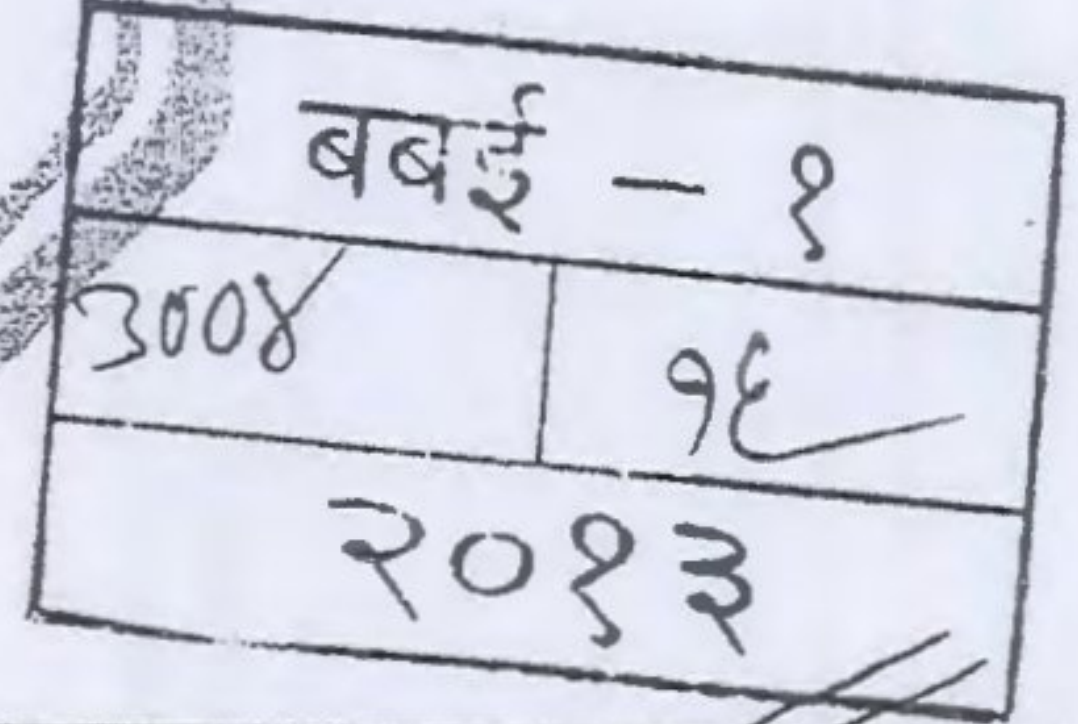 बबई - १
३००४ १६
२०१३